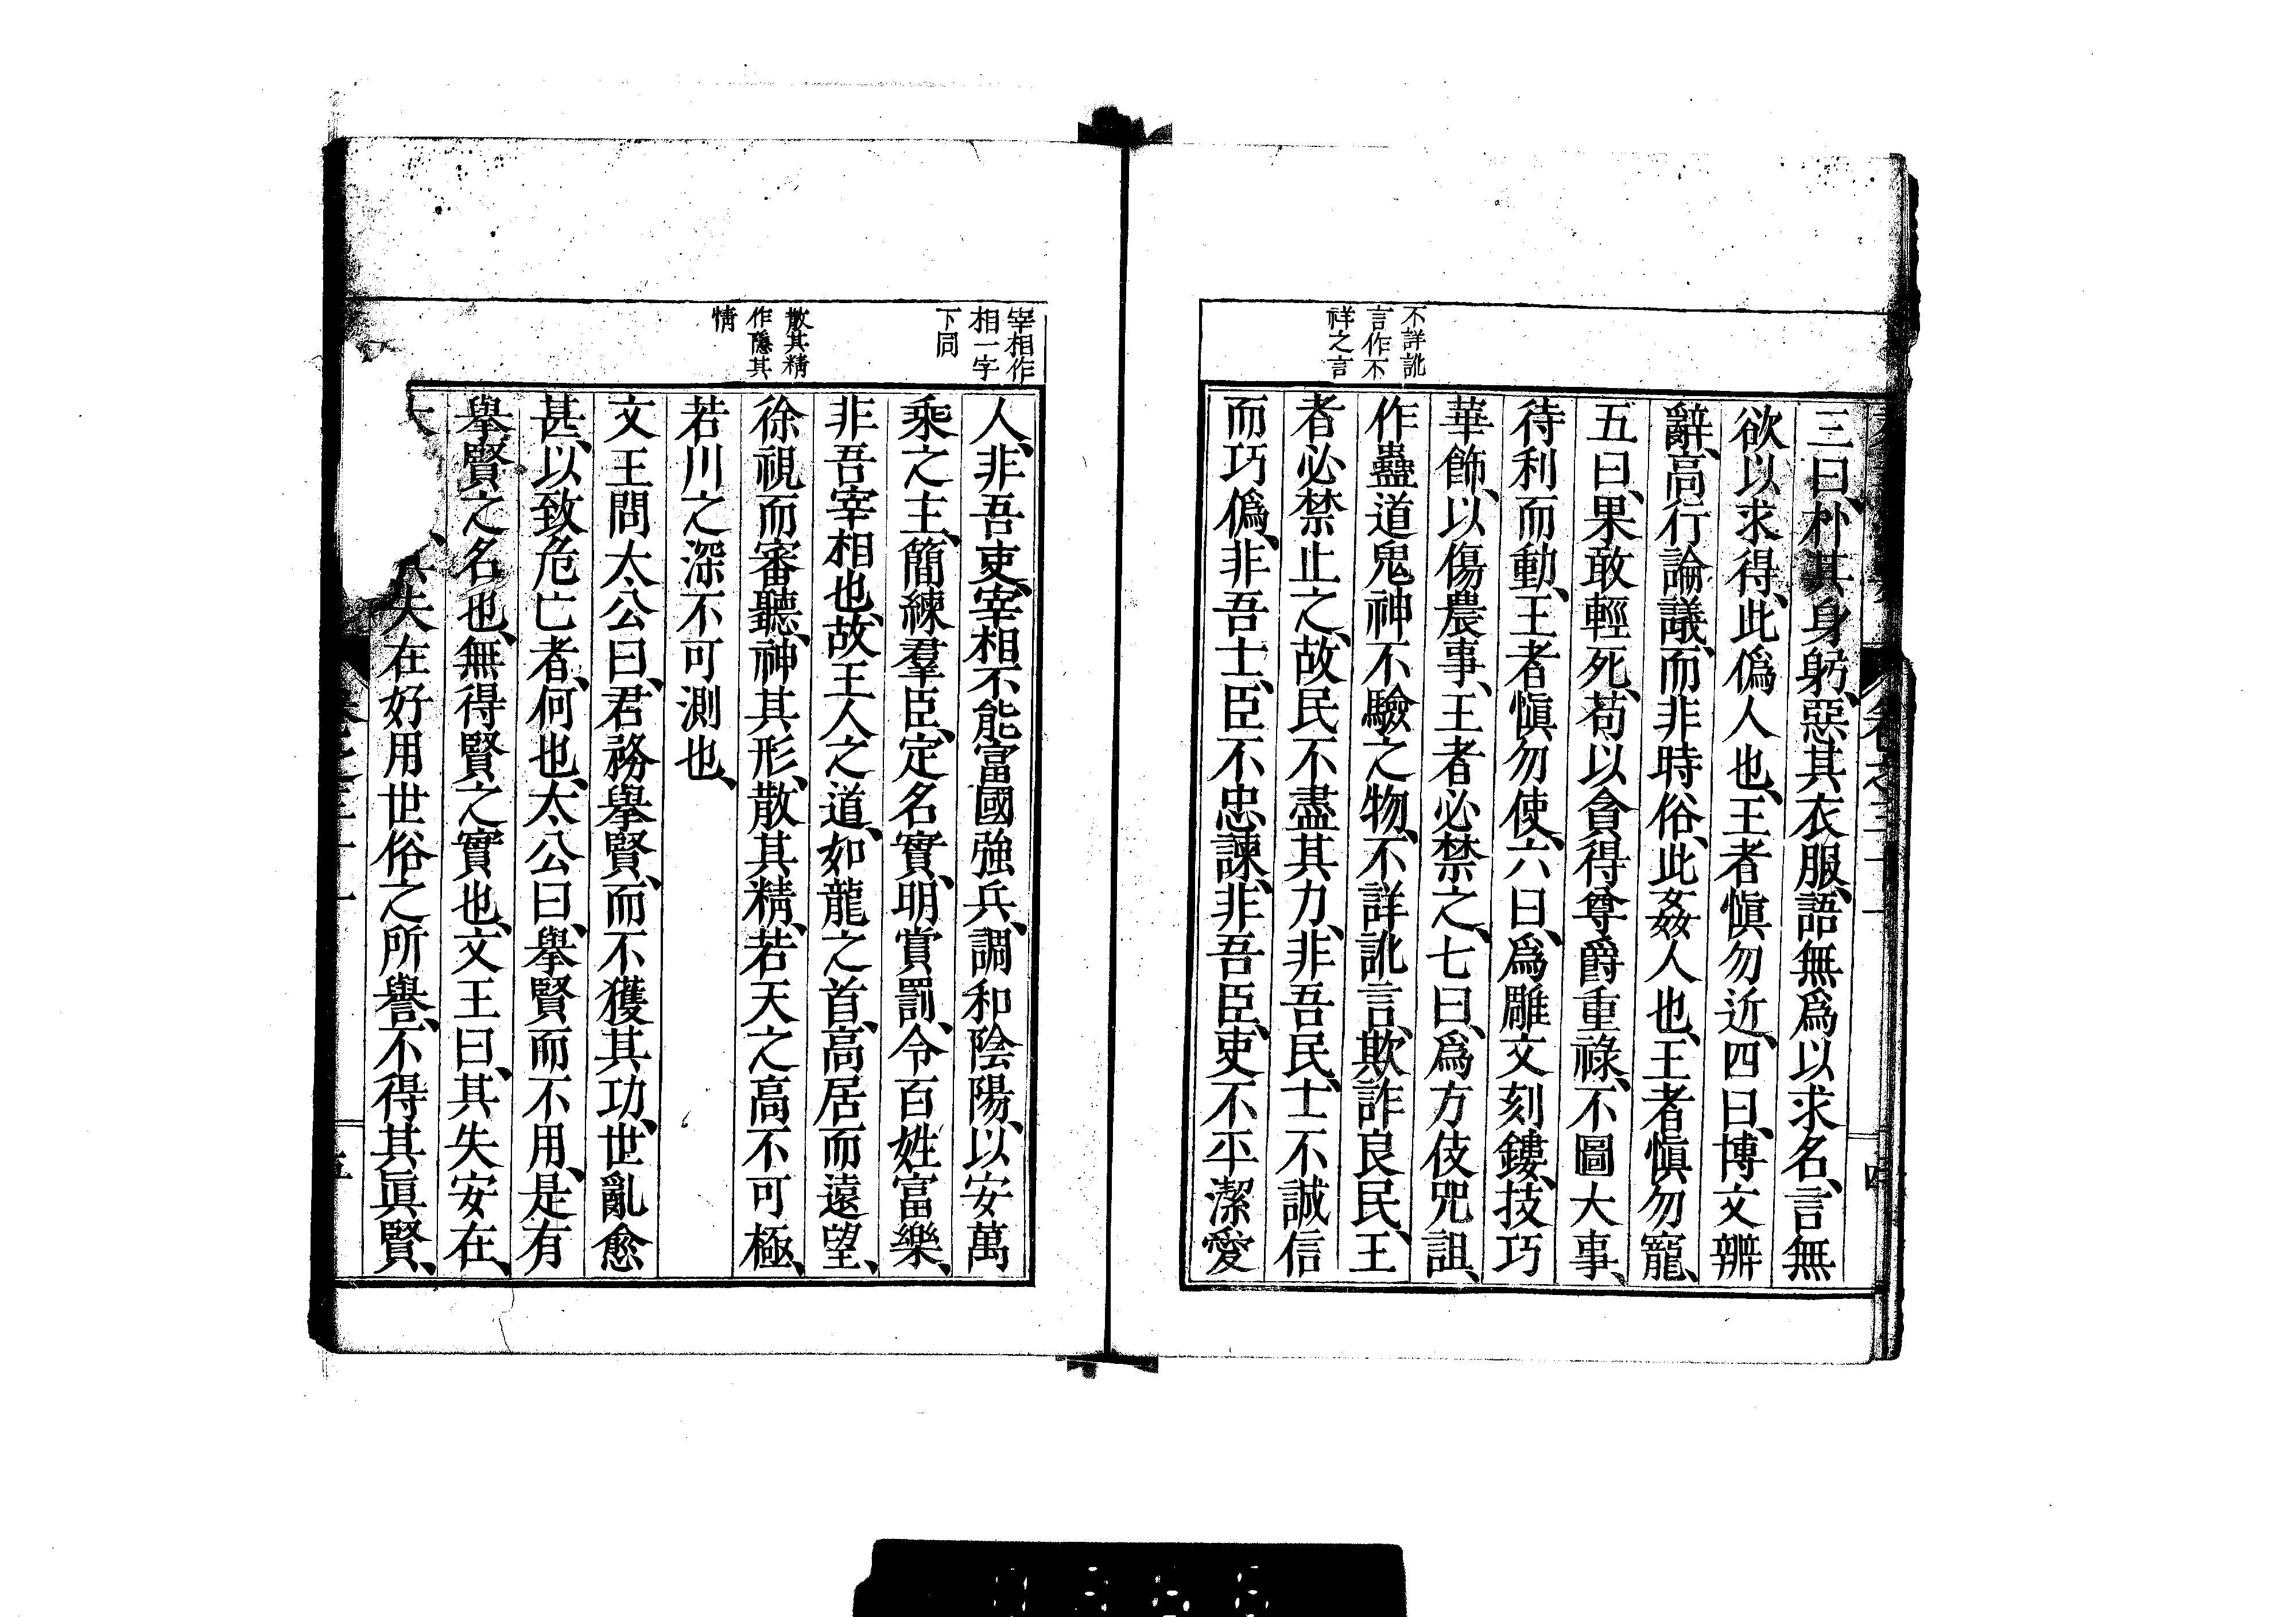 不詳訛
言作不
祥之言
三曰、朴其身躬、惡其衣服、語無爲以求名、言無
欲以求得、此僞人也、王者愼勿近、四曰、博文辨
辭、高行論議、而非時俗、此姦人也、王者愼勿寵、
五曰、果敢輕死、苟以貪得尊爵重祿、不圖大事、
待利而動、王者愼勿使、六曰、爲雕文刻鏤、技巧
華飾、以傷農事、王者必禁之、七曰、爲方伎咒詛、
作蠱道鬼神不驗之物、不詳訛言、欺詐良民、王
者必禁止之、故民不盡其力、非吾民、士不誠信
而巧僞、非吾士、臣不忠諫、非吾臣、吏不平潔愛
宰相作
相一字
下同
散其精
作隱其
情
人、非吾吏、宰相不能富國強兵、調和陰陽、以安萬
乘之主、簡練羣臣、定名實、明賞罰、令百姓富樂、
非吾宰相也、故王人之道、如龍之首、高居而遠望、
徐視而審聽、神其形、散其精、若天之高不可極、
若川之深不可測也、
文王問太公曰、君務擧賢、而不獲其功、世亂愈
甚、以致危亡者、何也、太公曰、擧賢而不用、是有
擧賢之名也、無得賢之實也、文王曰、其失安在、
失在好用世俗之所譽、不得其眞賢、